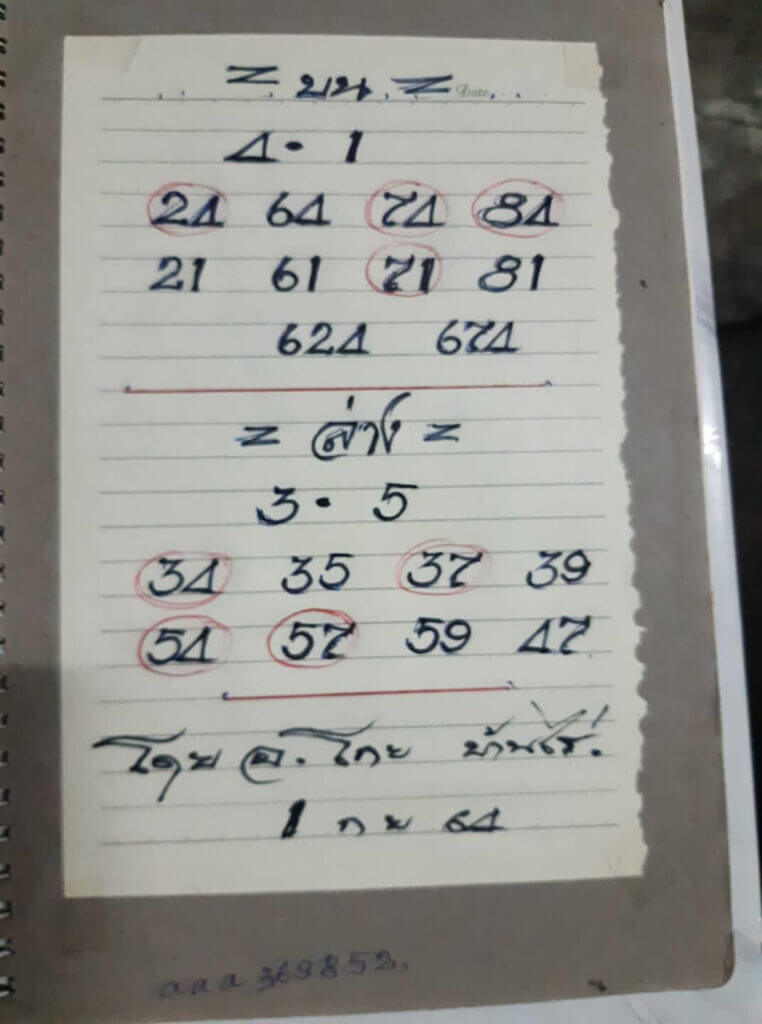 = บน =
Date
4 • 1
24 64 74 84
21 61 71 81
624 674
= ล่าง =
3 • 5
34 35 37 39
54 57 59 47
โดย อ. โกย บ้านไร่.
1 กย 64
aaa 369852.